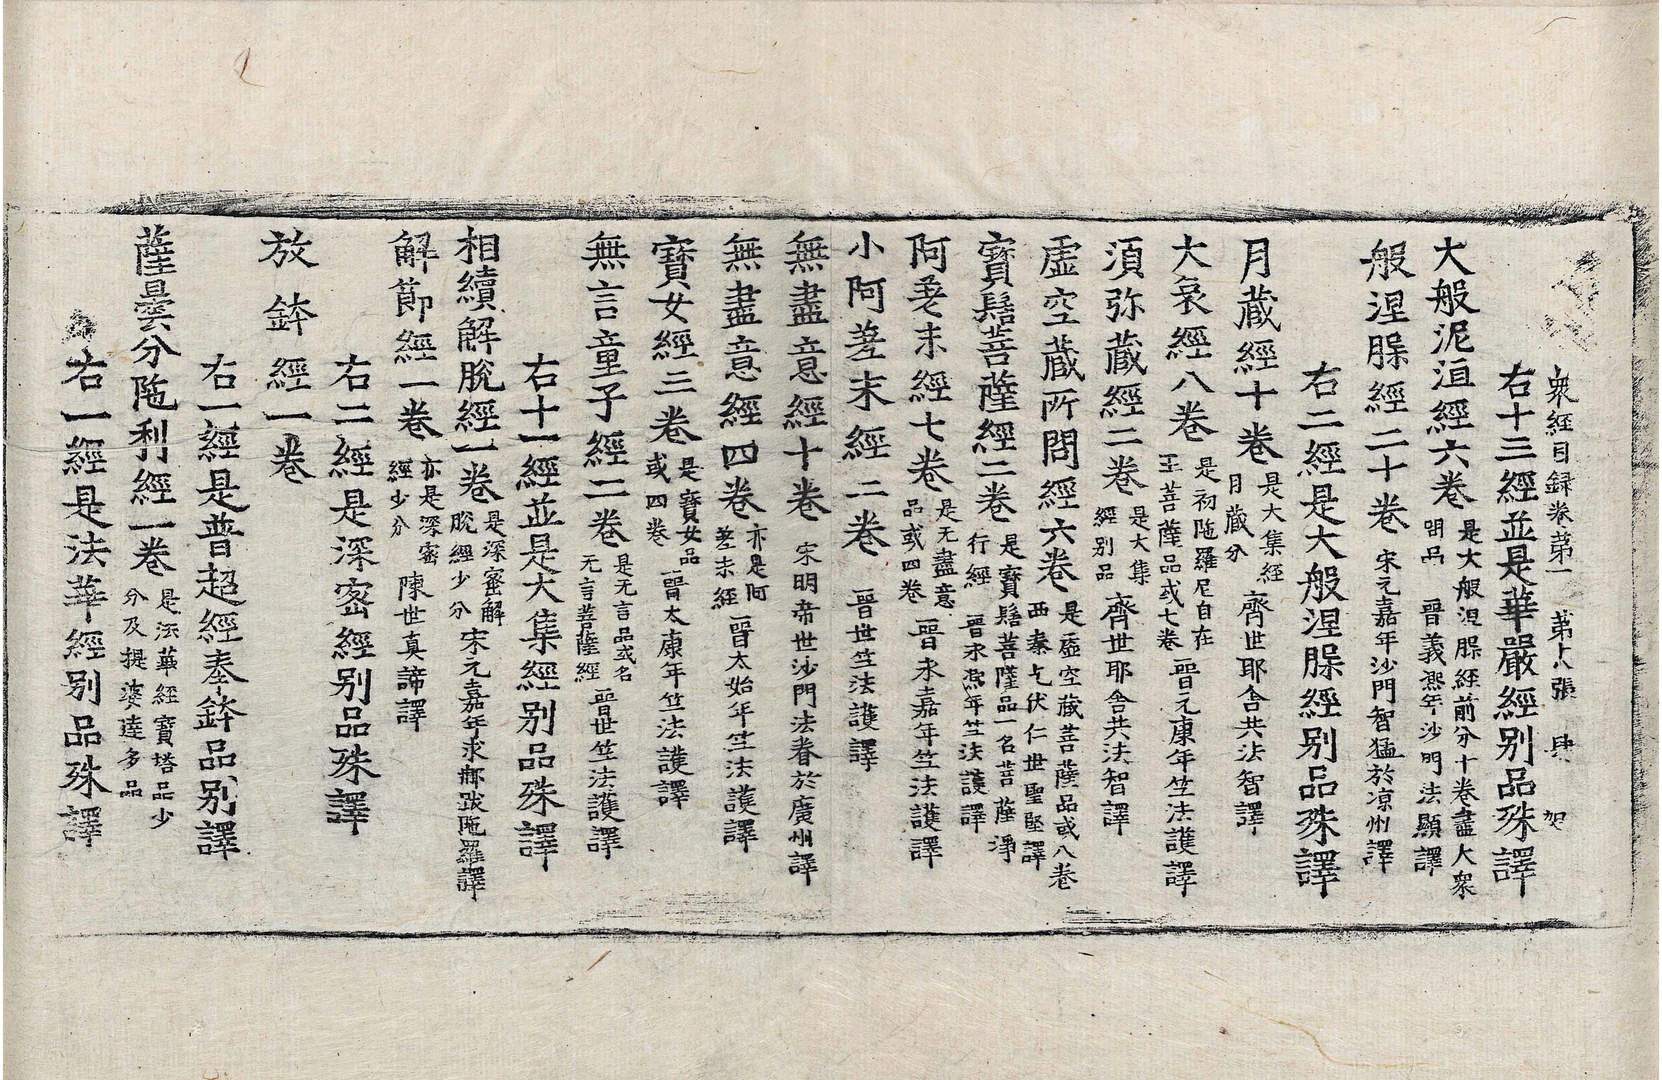 衆經目録卷第一　第十八張　肆　賀
右十三經並是華嚴經别品殊譯
大般泥洹經六卷 是大般涅槃經前分十卷盡大衆問品 晉義熙年沙門法顯譯
般涅槃經二十卷 宋元嘉年沙門智猛於涼州譯
右二經是大般涅槃經别品殊譯
月藏經十卷 是大集經月藏分 齊世耶舍共法智譯
大哀經八卷 是初陁羅尼自在王菩薩品或七卷 晉元康年竺法護譯
須弥藏經二卷 是大集經别品 齊世耶舍共法智譯
虚空藏所問經六卷 是虚空藏菩薩品或八卷 西秦乞伏仁世聖堅譯
寳髻菩薩經二卷 是寳髻菩薩品一名菩薩淨行經 晉永熙年竺法護譯
阿差末經七卷 是无盡意品或四卷 晉永嘉年竺法護譯
小阿差末經二卷 晉世竺法護譯
無盡意經十卷 宋明帝世沙門法眷於廣州譯
無盡意經四卷 亦是阿差末經 晉太始年竺法護譯
寳女經三卷 是寳女品或四卷 晉太康年竺法護譯
無言童子經二卷 是无言品或名无言菩薩經 晉世竺法護譯
右十一經並是大集經别品殊譯
相續解脫經一卷 是深密解脫經少分 宋元嘉年求那跋陁羅譯
解節經一卷 亦是深密經少分 陳世真諦譯
右二經是深密經别品殊譯
放鉢經一卷
右一經是普超經奉鉢品别譯
薩曇分陁利經一卷 是法華經寳塔品少分及提婆達多品
右一經是法華經别品殊譯